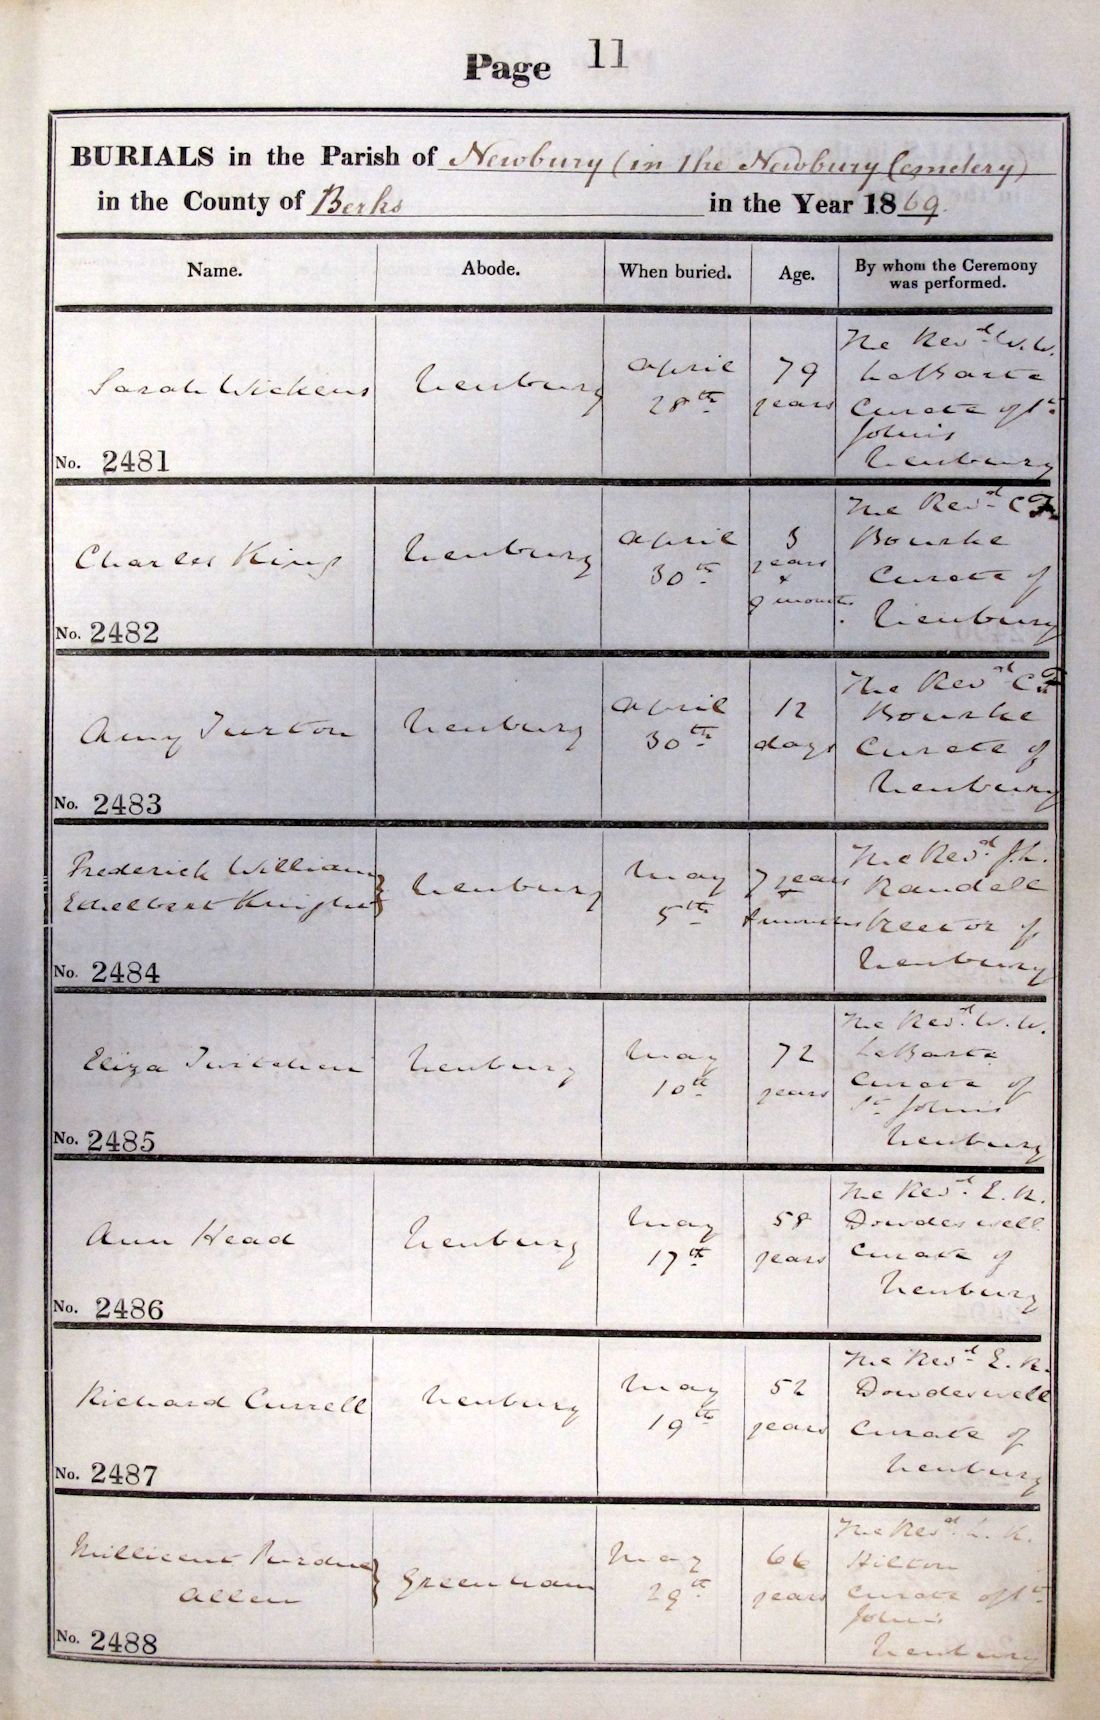 Page 11
BURIALS in the Parish of Newbury (in the Newbury Cemetery)
in the County of Berks in the Year 1869.
Name. Abode. When buried. Age. By whom the Ceremony was performed.
Sarah Wickens
No. 2481
Newbury
April
28th
79
years
The Revd W. W.
LeBarte
Curate of St
John's
Newbury
Charles King
No. 2482
Newbury
April
30th
years
&
9 months
The Revd C F
Bourke
Curate of
Newbury
Amy Turton
No. 2483
Newbury
April
30th
12
days
The Revd C F
Bourke
Curate of
Newbury
Frederick William
Ethelbert Knight
No. 2484
Newbury
May
5th
7 years
months
The Revd J. L.
Randall
Rector of
Newbury
Eliza Twitchen
No. 2485
Newbury
May
10th
72
years
The Revd W. W.
LeBarte
Curate of
St John's
Newbury
Ann Head
No. 2486
Newbury
May
17th
58
years
The Revd E. R.
Dowdeswell
Curate of
Newbury
Richard Currell
No. 2487
Newbury
May
19th
52
years
The Revd E. R.
Dowdeswell
Curate of
Newbury
Millicent Purdue
Allen
No. 2488
Greenham
May
29th
66
years
The Revd
Hilton
Curate of St
John's
Newbury